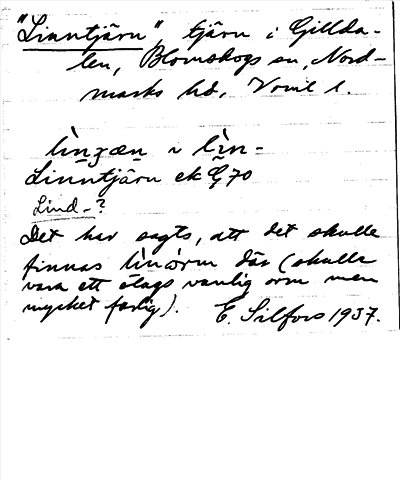 "Linntjärn", tjärn i Gillda-
len, Blomskogs sn, Nord-
marks hd, Värml l.
lìnʒæn i lìn-
Linntjärn ek Ç 70
Lind-?
Det har sagts, att det skulle
finnas lìnòrm där (skulle
vara ett slags vanlig orm men
mycket farlig). E. Silfors 1937.